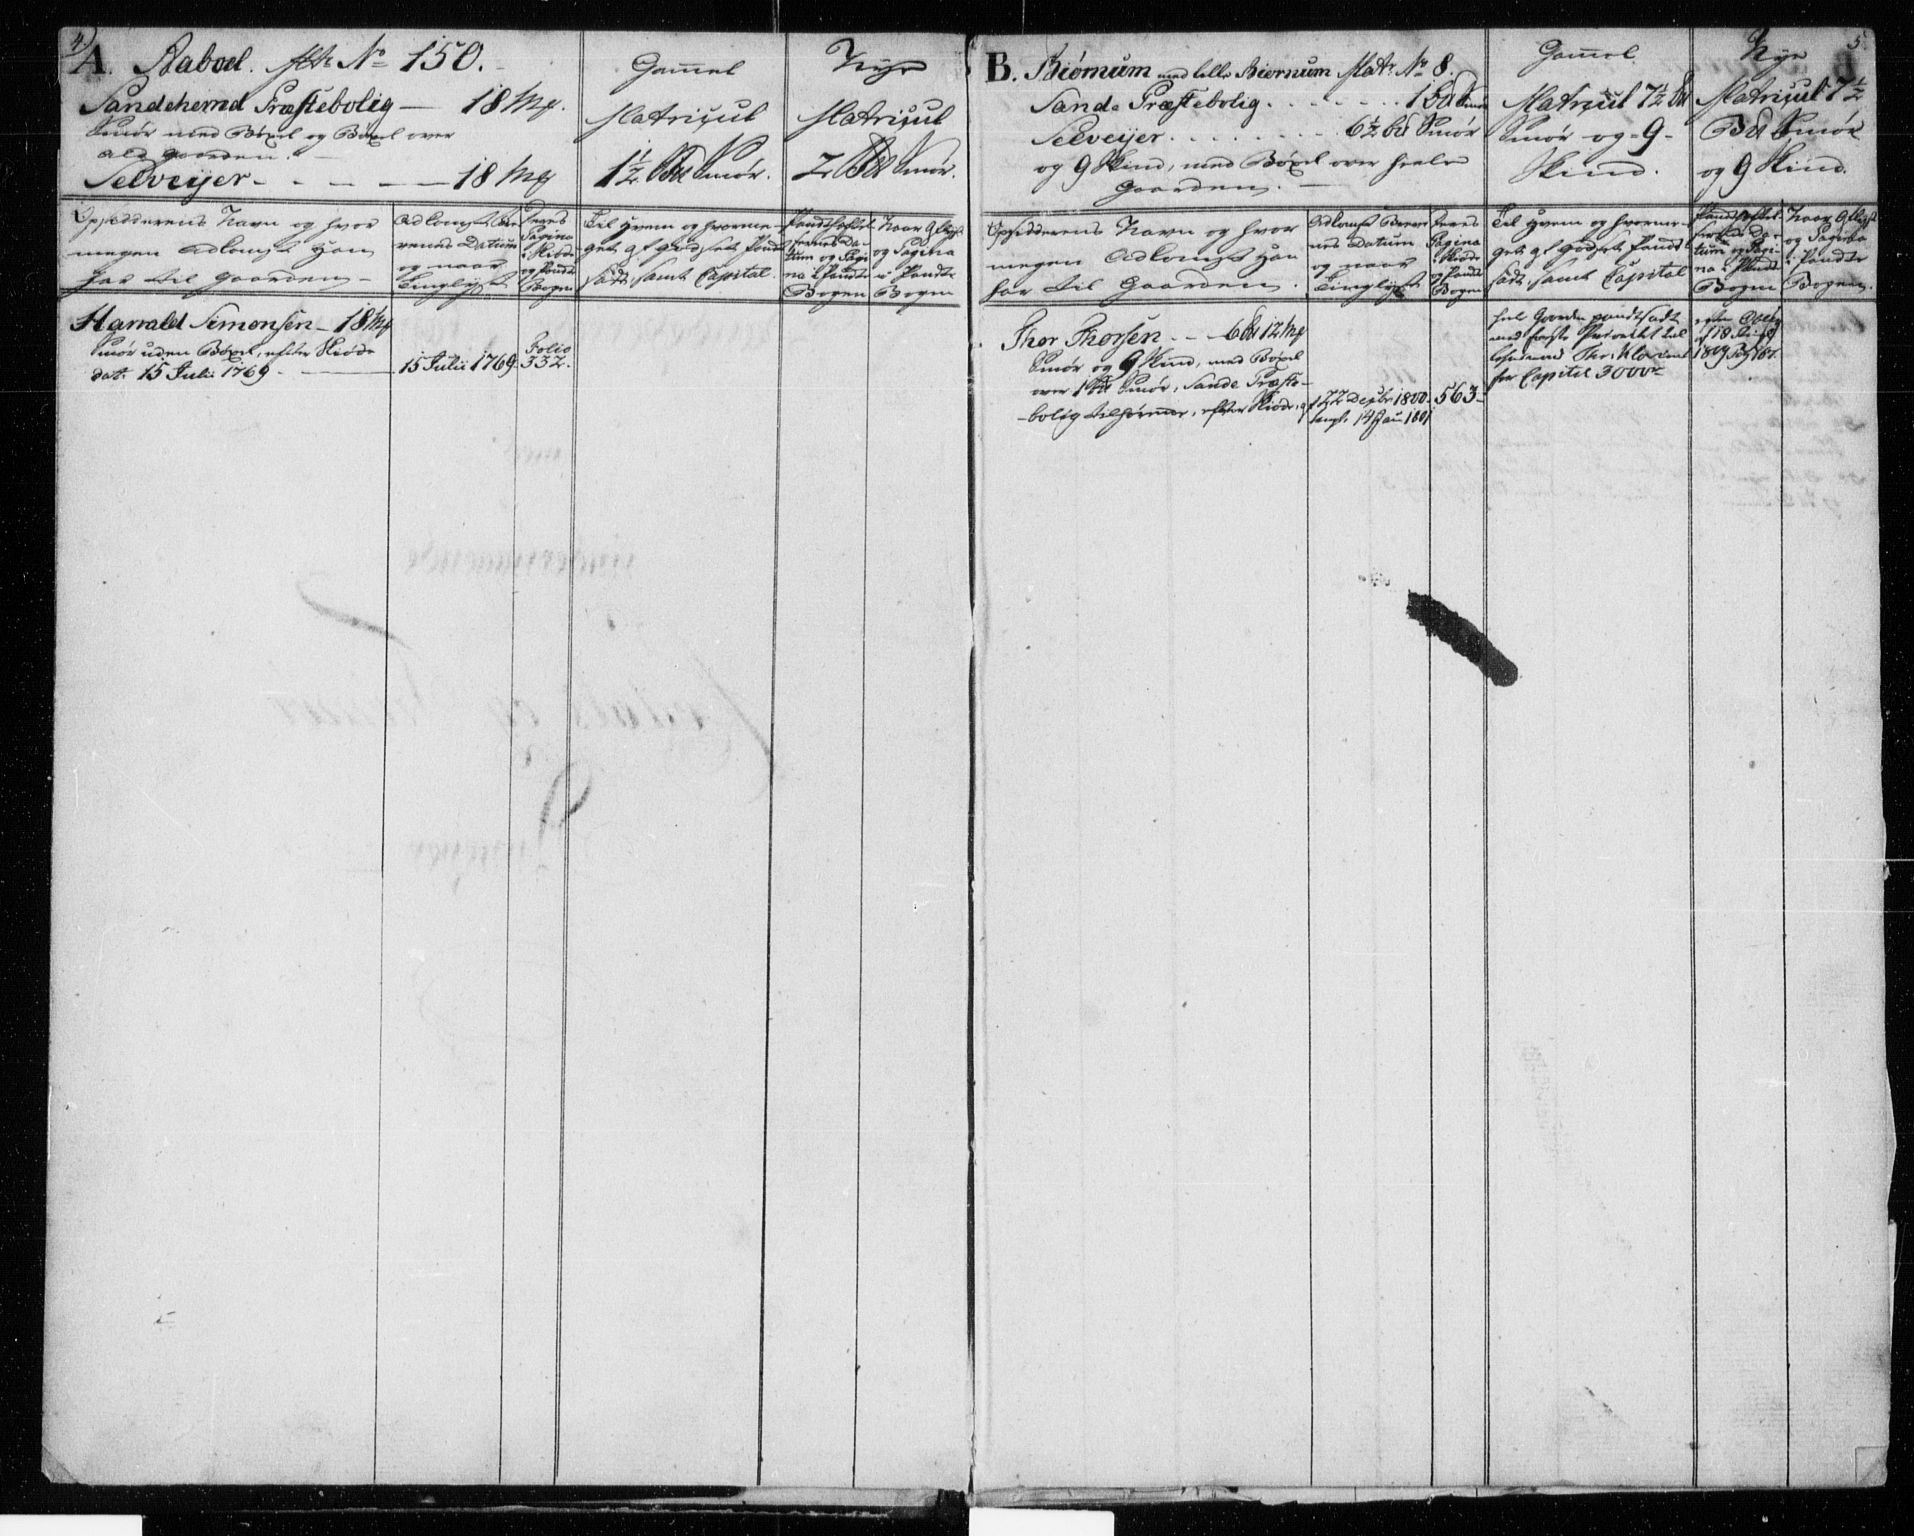 4)
A. Aaboel. Matr. No 150.
Sandeherred Præstebolig — 18 Mg.
Smør med Bøxel og Bøxel over
ald Gaarden. —
Selveyer - - - - — 18 Mg
Gammel
Matricul
1½ Bd Smør.
Nye
Matricul
2 Bd Smør.
Opsidderens Navn og hvor
megen Adkomst Han
har til Gaarden —
Adkomst Bre-
venes Datum
og naar
Tinglyst
Deres
Pagina
i Skiøde
og Pandte
Bogen
Til Hvem og hvorme-
get af Godset Pandt-
sadt, samt Capital.
Pandthæftel-
sernes Da-
tum og Pagi-
na i Pandte
Bogen
Naar Aflyst
og Pagina
i Pandte
Bogen
Harrald Simonsen — 18 Mg
Smør uden Bøxel, efter Skiøde
dat. 15 Julii 1769 —
15 Julii 1769.
Folio
332.
5.
B. Biørnum med lille Biørnum Matr. No 8.
Sande Præstebolig. . . . . . . 1 Bd Smør
Selveyer. . . . . . . . 6½ Bd Smør
og 9 Skind, med Bøxel over heele
Gaarden. —
Gammel
Matricul 7½ Bd
Smør og - 9 -
Skind.
Nye
Matricul 7½
Bd Smør
og 9 Skind.
Opsidderens Navn og hvor
megen Adkomst Han
har til Gaarden.
Adkomst Breve-
nes Datum
og naar
Tinglyst
Deres
Pagina
i Skiøde
og Pandte
Bogen
Til Hvem og hvorme-
get af Godset Pandt-
sadt, samt Capital
Pandthæftel-
sernes Da-
tum og Pagi-
na i Pandte
Bogen
Naar Aflyst
og Pagina
i Pandte
Bogen.
Thor Thorsen. - - 6 Bd 12 Mg
Smør og 9 Skind, med Bøxel
over 1 Bd Smør, Sande Præste-
-bolig tilhørende, efter Skiøde, af
22 Decbr 1800.
tingl. 14 Jan 1801
563-
heele Gaarden pandtsadt
med første Prioritet til
Thr. Klavenes
for Capital 3000 rd
efter Oblig
af 18
1809 Fol 187.